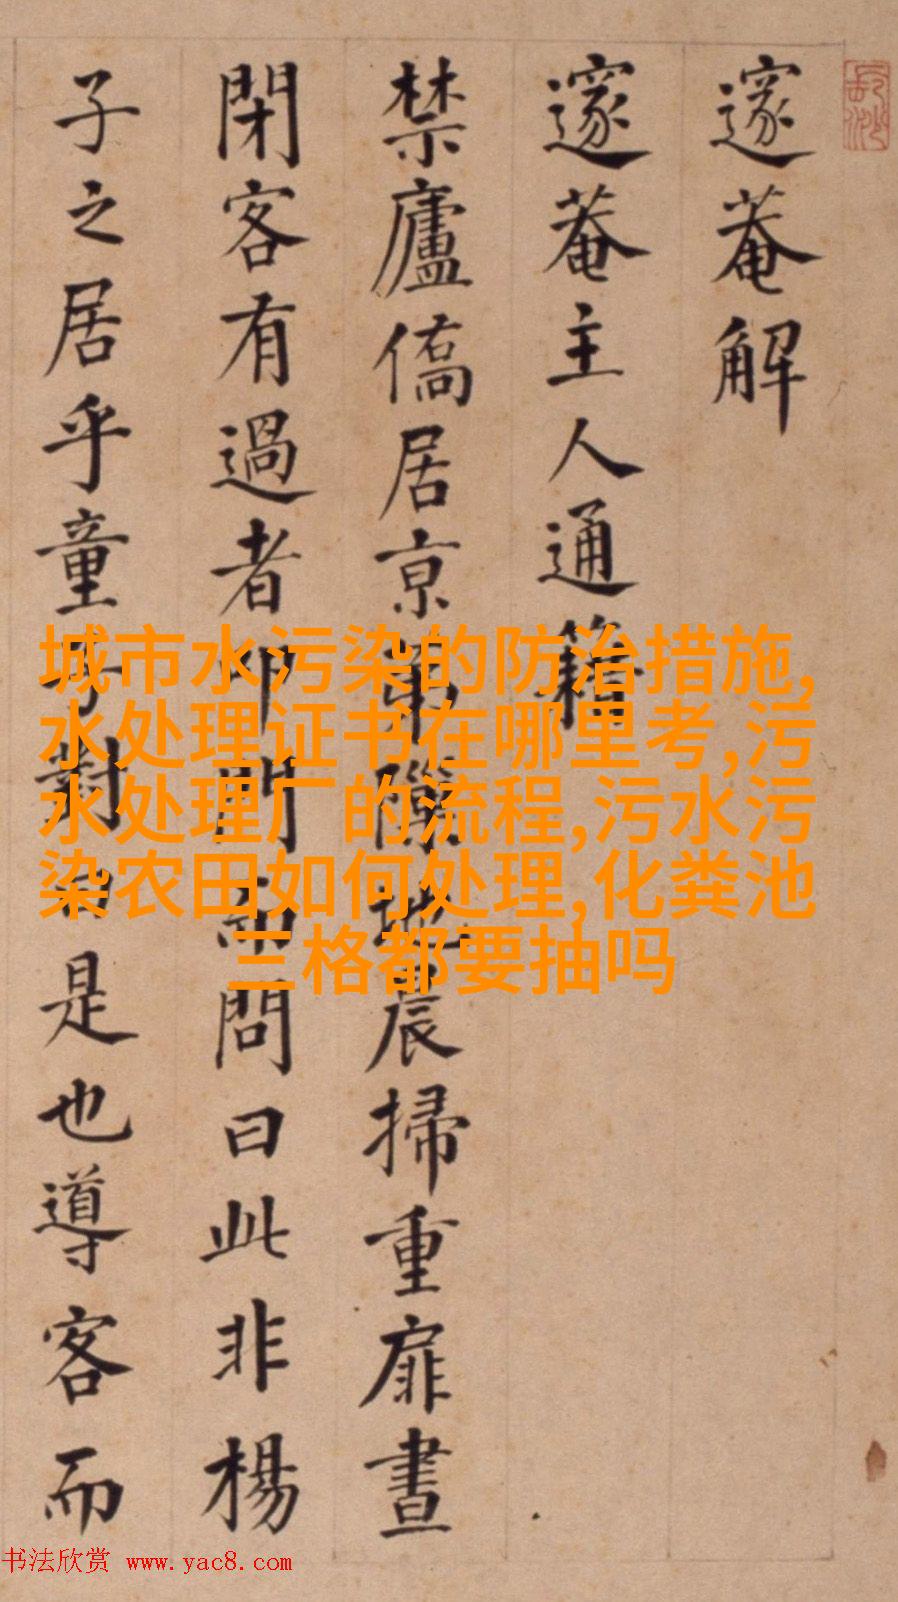 邃菴解
邃菴主人通籍
禁廬僑居京第隙地晨掃重扉晝
閉客有過者叩門而問曰此非楊
子之居乎童子對曰是也導客而
城市水污染的防治措施,
水处理证书在哪里考,污
水处理厂的流程,污水污
染农田如何处理,化粪池
三格都要抽吗
书法欣赏 www.yac8.com